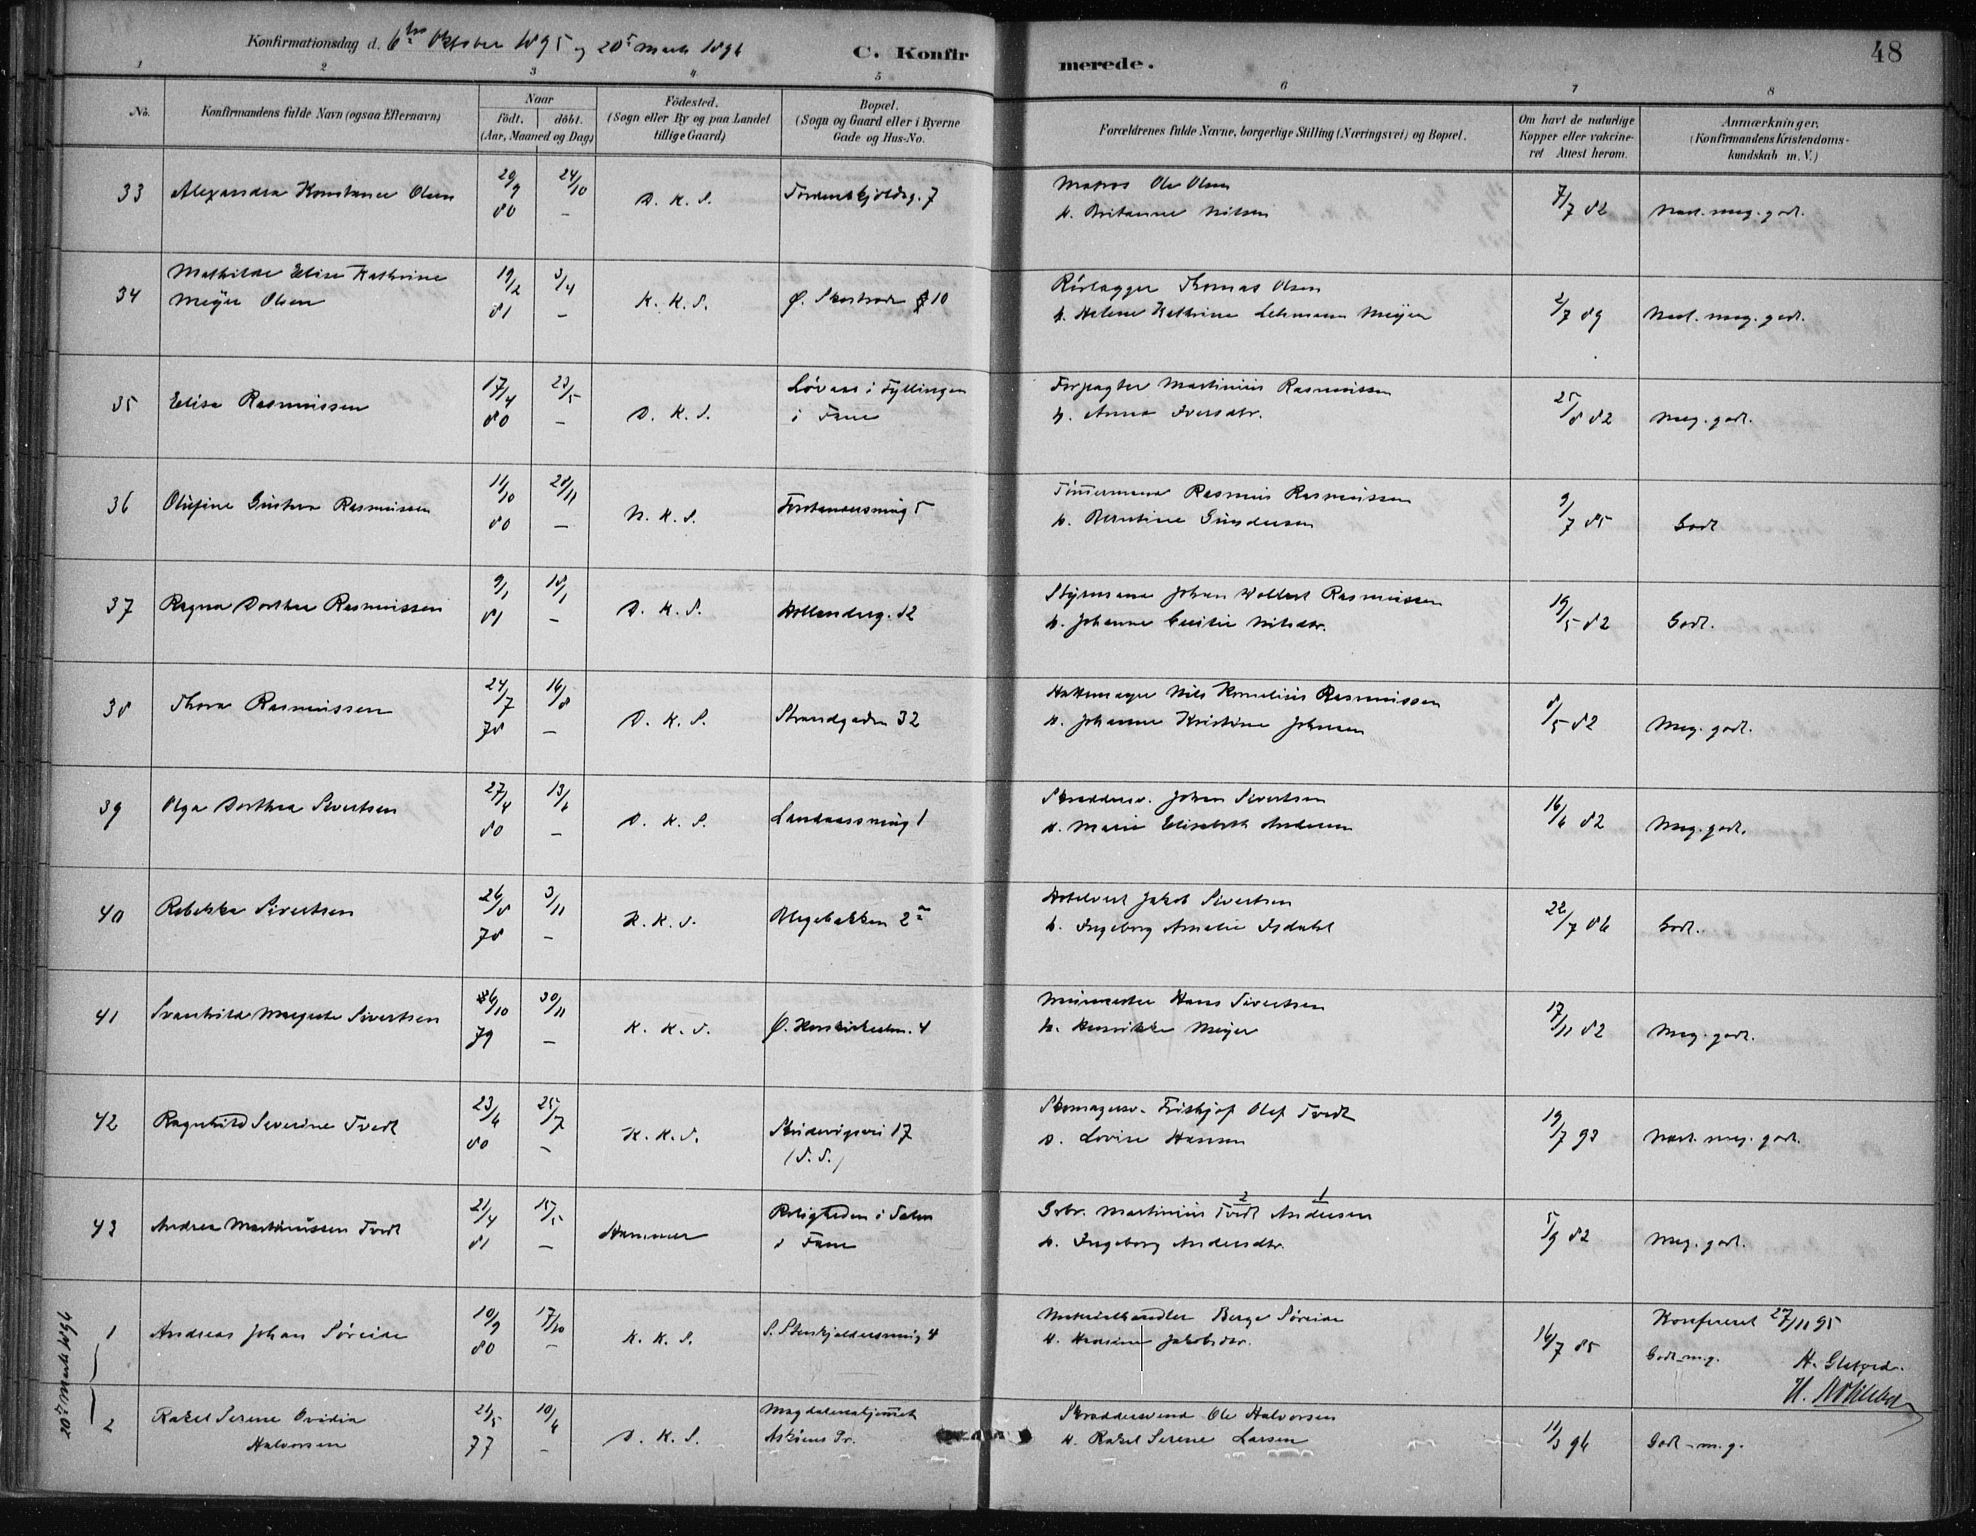 Konfirmationsdag d. 6te Oktober 1895 og 20de Marts 1896
C. Konfirmerede.
48
1 2 3 4 5 6 7 8
No.
Konfirmandens fulde Navn (ogsaa Efternavn)
Naar
födt. döbt.
(Aar, Maaned og Dag)
Födested.
(Sogn eller By og paa Landet
tillige Gaard)
Bopæl.
(Sogn og Gaard eller i Byerne
Gade og Hus-No.
Forældrenes fulde Navne, borgerlige Stilling (Næringsvei) og Bopæl.
Om havt de naturlige
Kopper eller vakcine-
ret Attest herom.
Anmærkninger.
(Konfirmandens Kristendoms-
kundskab m. V.)
33 Alexandra Konstance Olsen 20/9 80 24/10 — D. K. S. Tordenskjoldsg. 7
Matros Ole Olsen
H. Britanne Nilsen
7/7 82 Næst. meg. godt.
34 Mathilde Elise Kathrine
Meyer Olsen 19/2 81 3/4 — K. K. S. Ø. Skostræde 10
Rörlægger Thomas Olsen
H. Helene Kathrine Lehmann Meyer
2/7 89 Næst. meg. godt.
35 Elise Rasmussen 17/4 80 23/5 — D. K. S. Løvaas i Fyllingen
i Fane
Forpagter Martinius Rasmussen
H. Anna Iversdtr.
25/8 82 Meg. godt.
36 Olufine Gustava Rasmussen 11/10 80 28/11 — N. K. S. Forstandersmug 5
Tömmermand Rasmus Rasmussen
H. Berntine Gundersen
9/7 85 Godt
37 Ragna Dorthea Rasmussen 9/1 81 18/1 — D. K. S. Hollenderg. 12
Styrmand Johan Wollert Rasmussen
H. Johanne Cecilie Nilsdtr.
19/5 82 Godt.
38 Thora Rasmussen 24/7 78 16/8 — D. K. S. Strandgaden 32
Hattemager Nils Kornelius Rasmussen
H. Johanne Kristine Johnsen
8/5 82 Meg. godt.
39 Olga Dorthea Sivertsen 27/4 80 13/6 — D. K. S. Landaassmug 1
Skræddersv. Johan Sivertsen
H. Marie Elisabeth Andersen
16/6 82 Meg. godt.
40 Rebekka Sivertsen 26/8 78 3/11 — K. K. S. Blegebakken 2a
Hotelvert Jakob Sivertsen
H. Ingeborg Amalie Isdahl
22/7 86 Godt.
41 Svanhild Margrete Sivertsen 26/10 79 30/11 — K. K. S. Ø. Korskirkealm. 4
Murmester Hans Sivertsen
H. Henrikke Meyer
17/11 82 Meg. godt.
42 Ragnhild Severine Tvedt 23/6 80 25/7 — K. K. S. Skudevigsvei 17
(S. S.)
Skomagersv. Frithjof Olaf Tvedt
H. Lovise Hansen
19/7 93 Næst. meg. godt.
43 Andrea Martinussen Tvedt 21/4 81 15/5 — Hammer Roligheden i Salen
i Fane
Grbr. Martinius Tvedt Andersen
2 1
H. Ingeborg Andersdtr.
5/9 82 Meg. godt.
20de Marts 1896
1 Andreas Johan Søreide 10/9 80 17/10 — K. K. S. S. Stenkjeldersmug 4
Materialhandler Berge Søreide
H. Hansine Jakobsdtr.
16/7 85 Konfereret 27/11 95
Godt–m.g.
2 Rakel Serene Ovidia
Halvorsen 21/5 77 10/6 — D. K. S. Magdalenahjemmet
Askøens Pr.
Skræddersvend Ole Halvorsen
H. Rakel Serene Larsen
11/3 96 Godt–m.g.